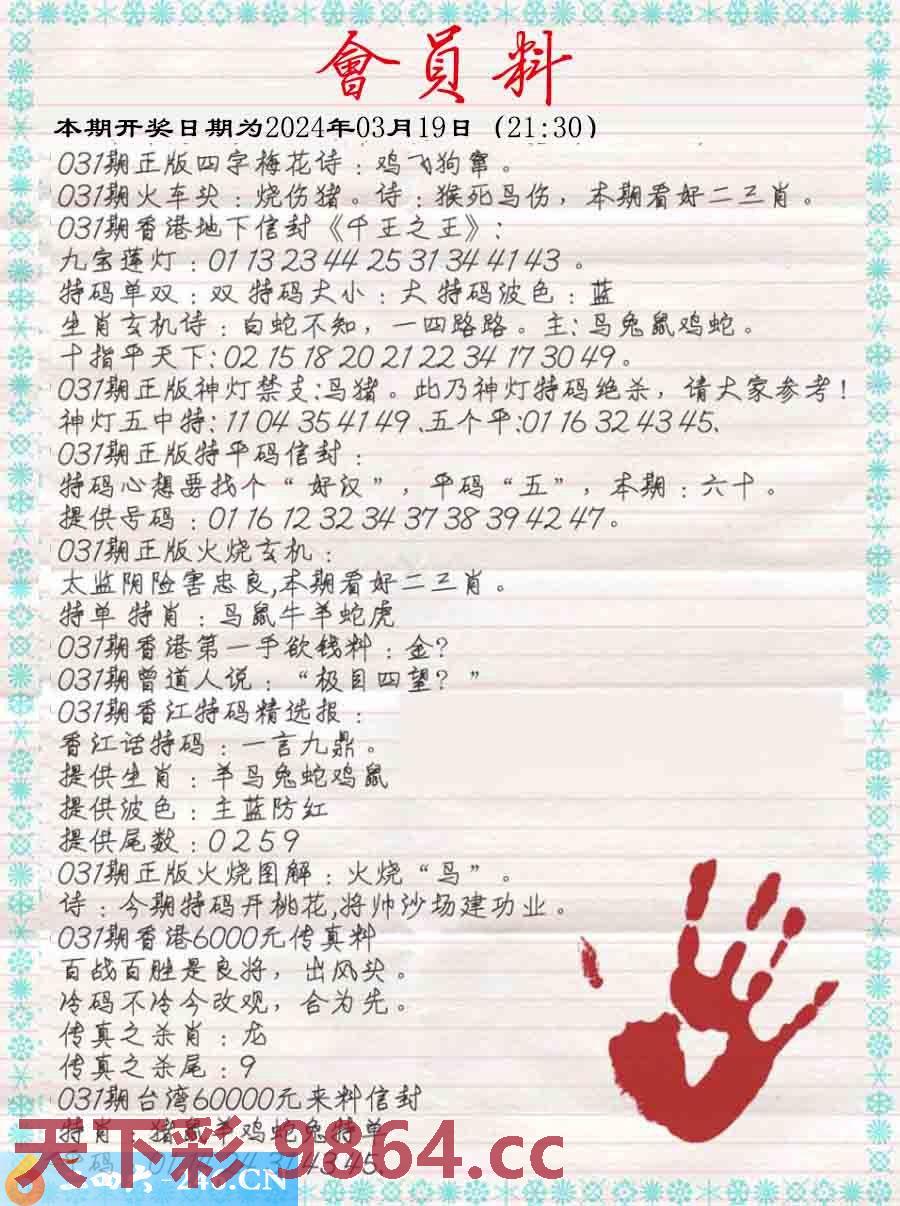 會員料
本期开奖日期为2024年03月19日（21:30）
031期正版四字梅花诗：鸡飞狗窜。
031期火车头：烧伤猪。诗：猴死鸟伤，本期看好二三肖。
031期香港地下信封《千王之王》:
九宝莲灯：01 13 23 44 25 31 34 41 43 。
特码单双：双 特码大小：大 特码波色：蓝
生肖玄机诗：白蛇不知，一四路路。主:马兔鼠鸡蛇。
十指平天下:02 15 18 20 21 22 34 17 30 49。
031期正版神灯禁支:马猪。此乃神灯特码绝杀，请大家参考！
神灯五中特: 11 04 35 41 49 .五个平:01 16 32 43 45.
031期正版特平码信封：
特码心想要找个“好汉”，平码“五”，本期：六十。
提供号码：01 16 12 32 34 37 38 39 42 47。
031期正版火烧玄机：
太监阴险害忠良,本期看好二三肖。
特单 特肖：马鼠牛羊蛇虎
031期香港第一手欲钱料：金?
031期曾道人说：“极目四望？”
031期香江特码精选报：
香江话特码：一言九鼎。
提供生肖：羊马兔蛇鸡鼠
提供波色：主蓝防红
提供尾数：0 2 5 9
031期正版火烧图解：火烧“鸟”。
诗：今期特码开桃花,将帅沙场建功业。
031期香港6000元传真料
百战百胜是良将，出风头。
冷码不冷今改观，合为先。
传真之杀肖：龙
传真之杀尾：9
031期台湾60000元来料信封
特肖：猪鼠羊鸡蛇兔特单
43 45.
天下彩 9864.cc
-246.CN